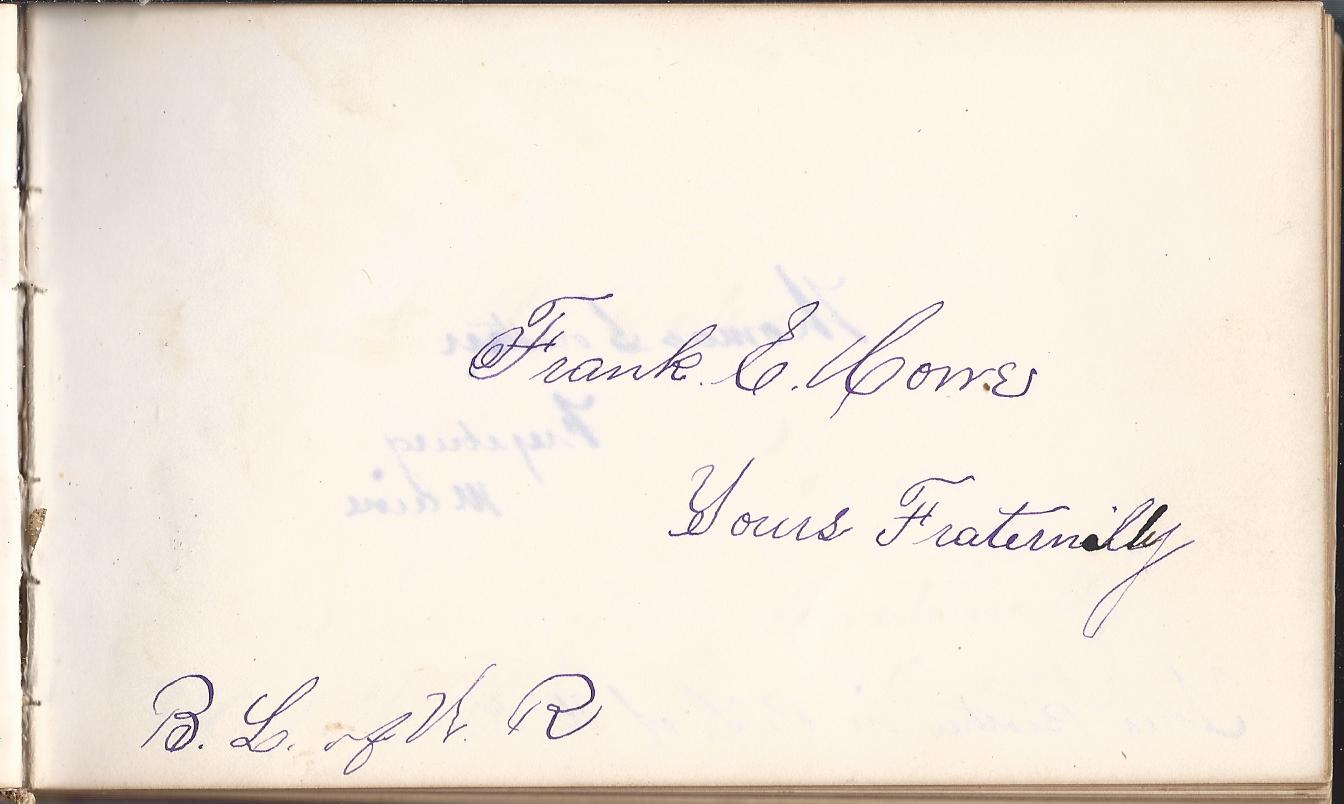 Frank E. Howe
Yours Fraternilly
B. L. of W. R